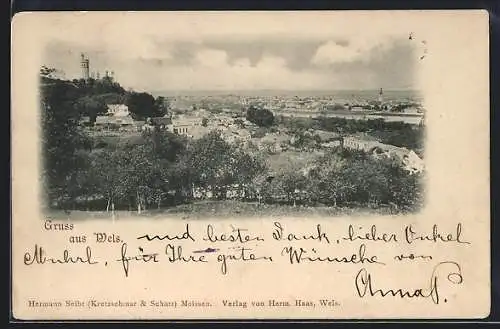 Gruss
aus Wels.
und besten Dank, lieber Onkel
Muhrl, für Ihre guten Wünsche von
Anna P.
Hermann Seibt (Kretzschmar & Schatz) Meissen. Verlag von Herm. Haas, Wels.